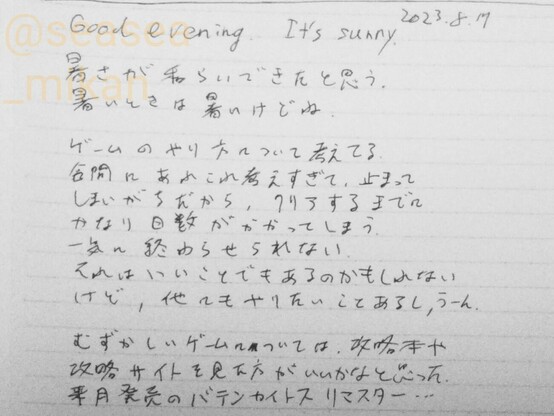 Good evening. It's sunny. 2023.8.17
@seasea
_mikan
暑さが和らいできたと思う.
暑いときは暑いけどね.
ゲームのやり方について考えてる.
合間にあれこれ考えすぎて, 止まって
しまいがちだから, クリアするまでに
かなり日数がかかってしまう.
一気に終わらせられない.
それはいいことでもあるのかもしれない
けど, 他にもやりたいことあるし, うーん.
むずかしいゲームについては, 攻略本や
攻略サイトを見た方がいいかなと思った.
来月発売のバテンカイトス リマスター…